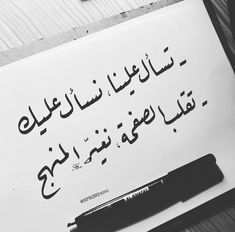 - تسأل علينا، نسأل عليك
- تقلب الصفحة، نغيّر المنهج